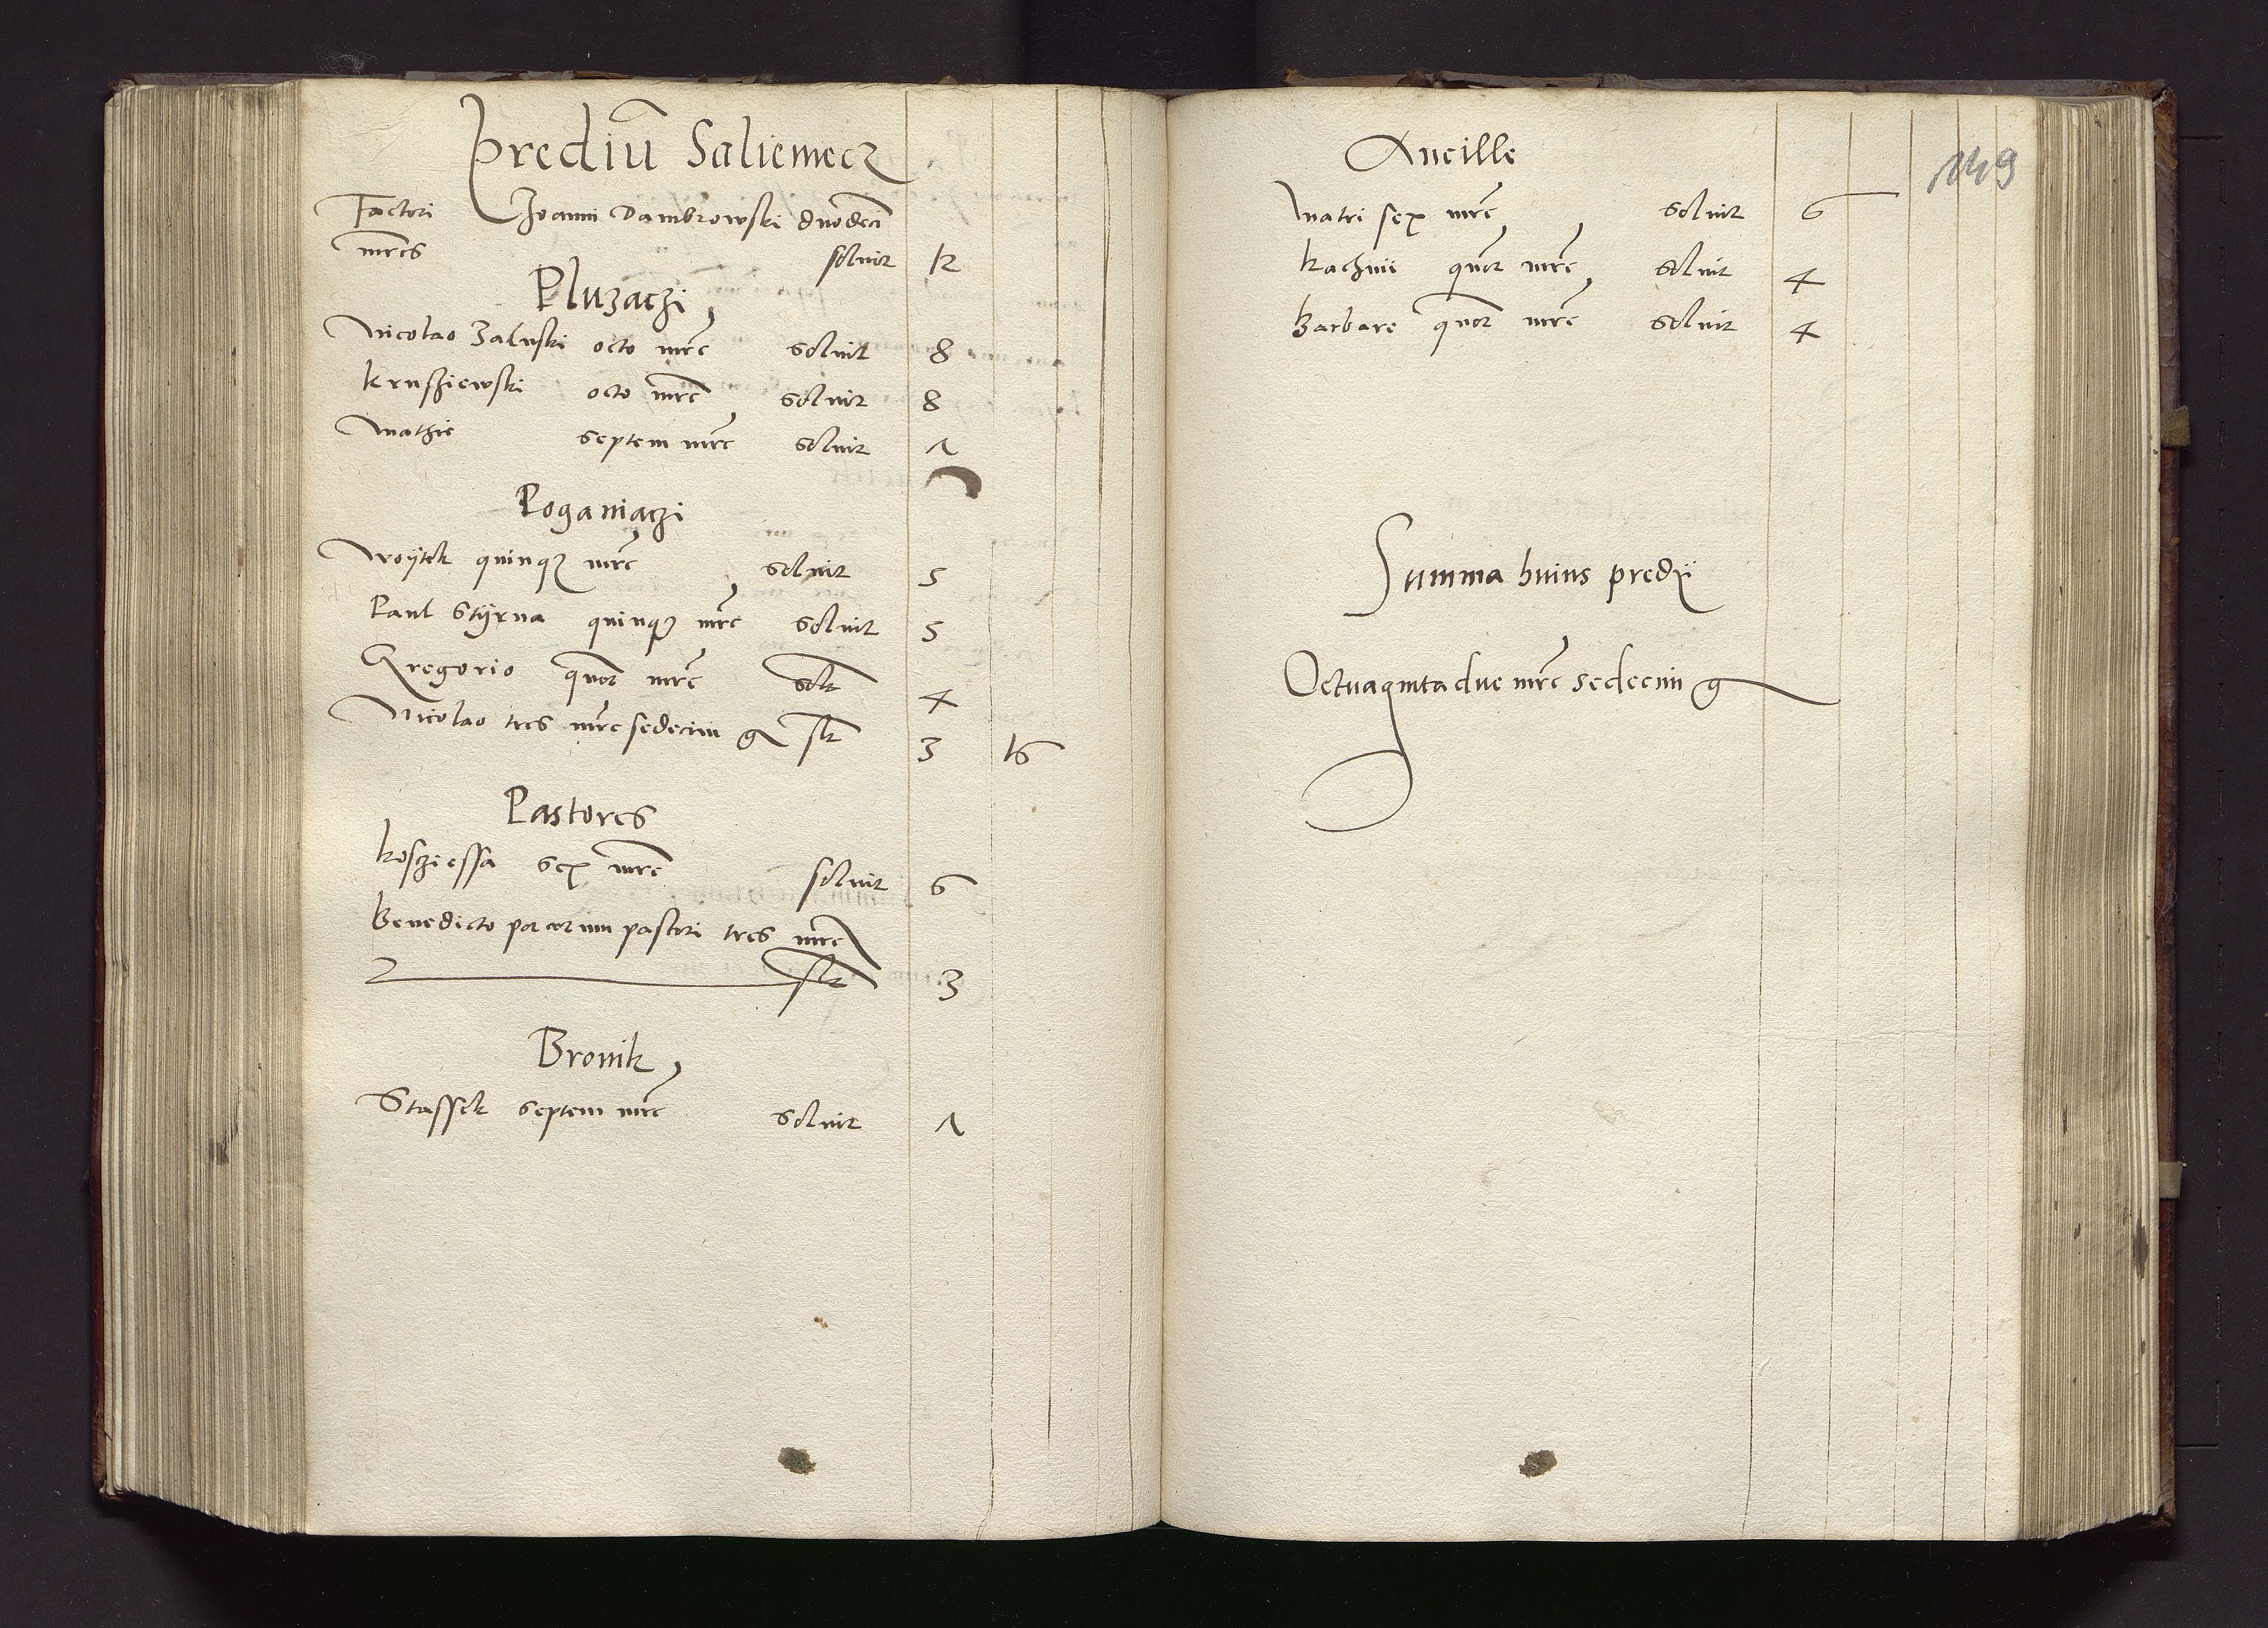 Prediū Saliemecz
Factori Joanni Dambrowski duodeci
mrcs soluit 12
Pluzaczi
Nicolao Zaluski octo mrc soluit 8
Krusziewski octo mrc soluit 8
Mathie septem mrc soluit 7
Poganiaczi
Woÿtek quinqz mrc soluit 5
Paul Stÿrna quinqz mrc soluit 5
Gregorio quor mrc solt 4
Nicolao tres mrc sedecim g slt 3 16
Pastores
Kosziessa sex mrc soluit 6
Benedicto porcorum pastori tres mrc
slt 3
Bronik
Stassek septem mrc soluit 7
Ancille
149
Matri sex mrc soluit 6
Kachnii quor mrc soluit 4
Barbare quor mrc soluit 4
Summa huius predÿ
Octuaginta due mrc sedecim g